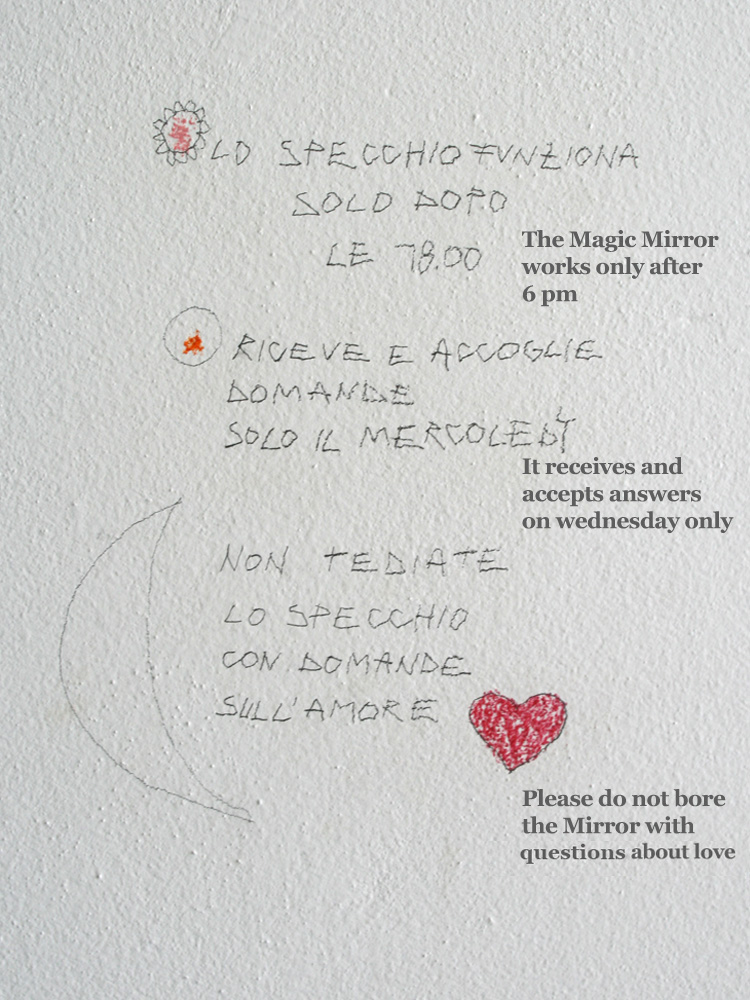 LO SPECCHIO FUNZIONA
SOLO DOPO
LE 18.00
The Magic Mirror
works only after
6 pm
RICEVE E ACCOGLIE
DOMANDE
SOLO IL MERCOLEDÌ
It receives and
accepts answers
on wednesday only
NON TEDIATE
LO SPECCHIO
CON DOMANDE
SULL'AMORE
Please do not bore
the Mirror with
questions about love